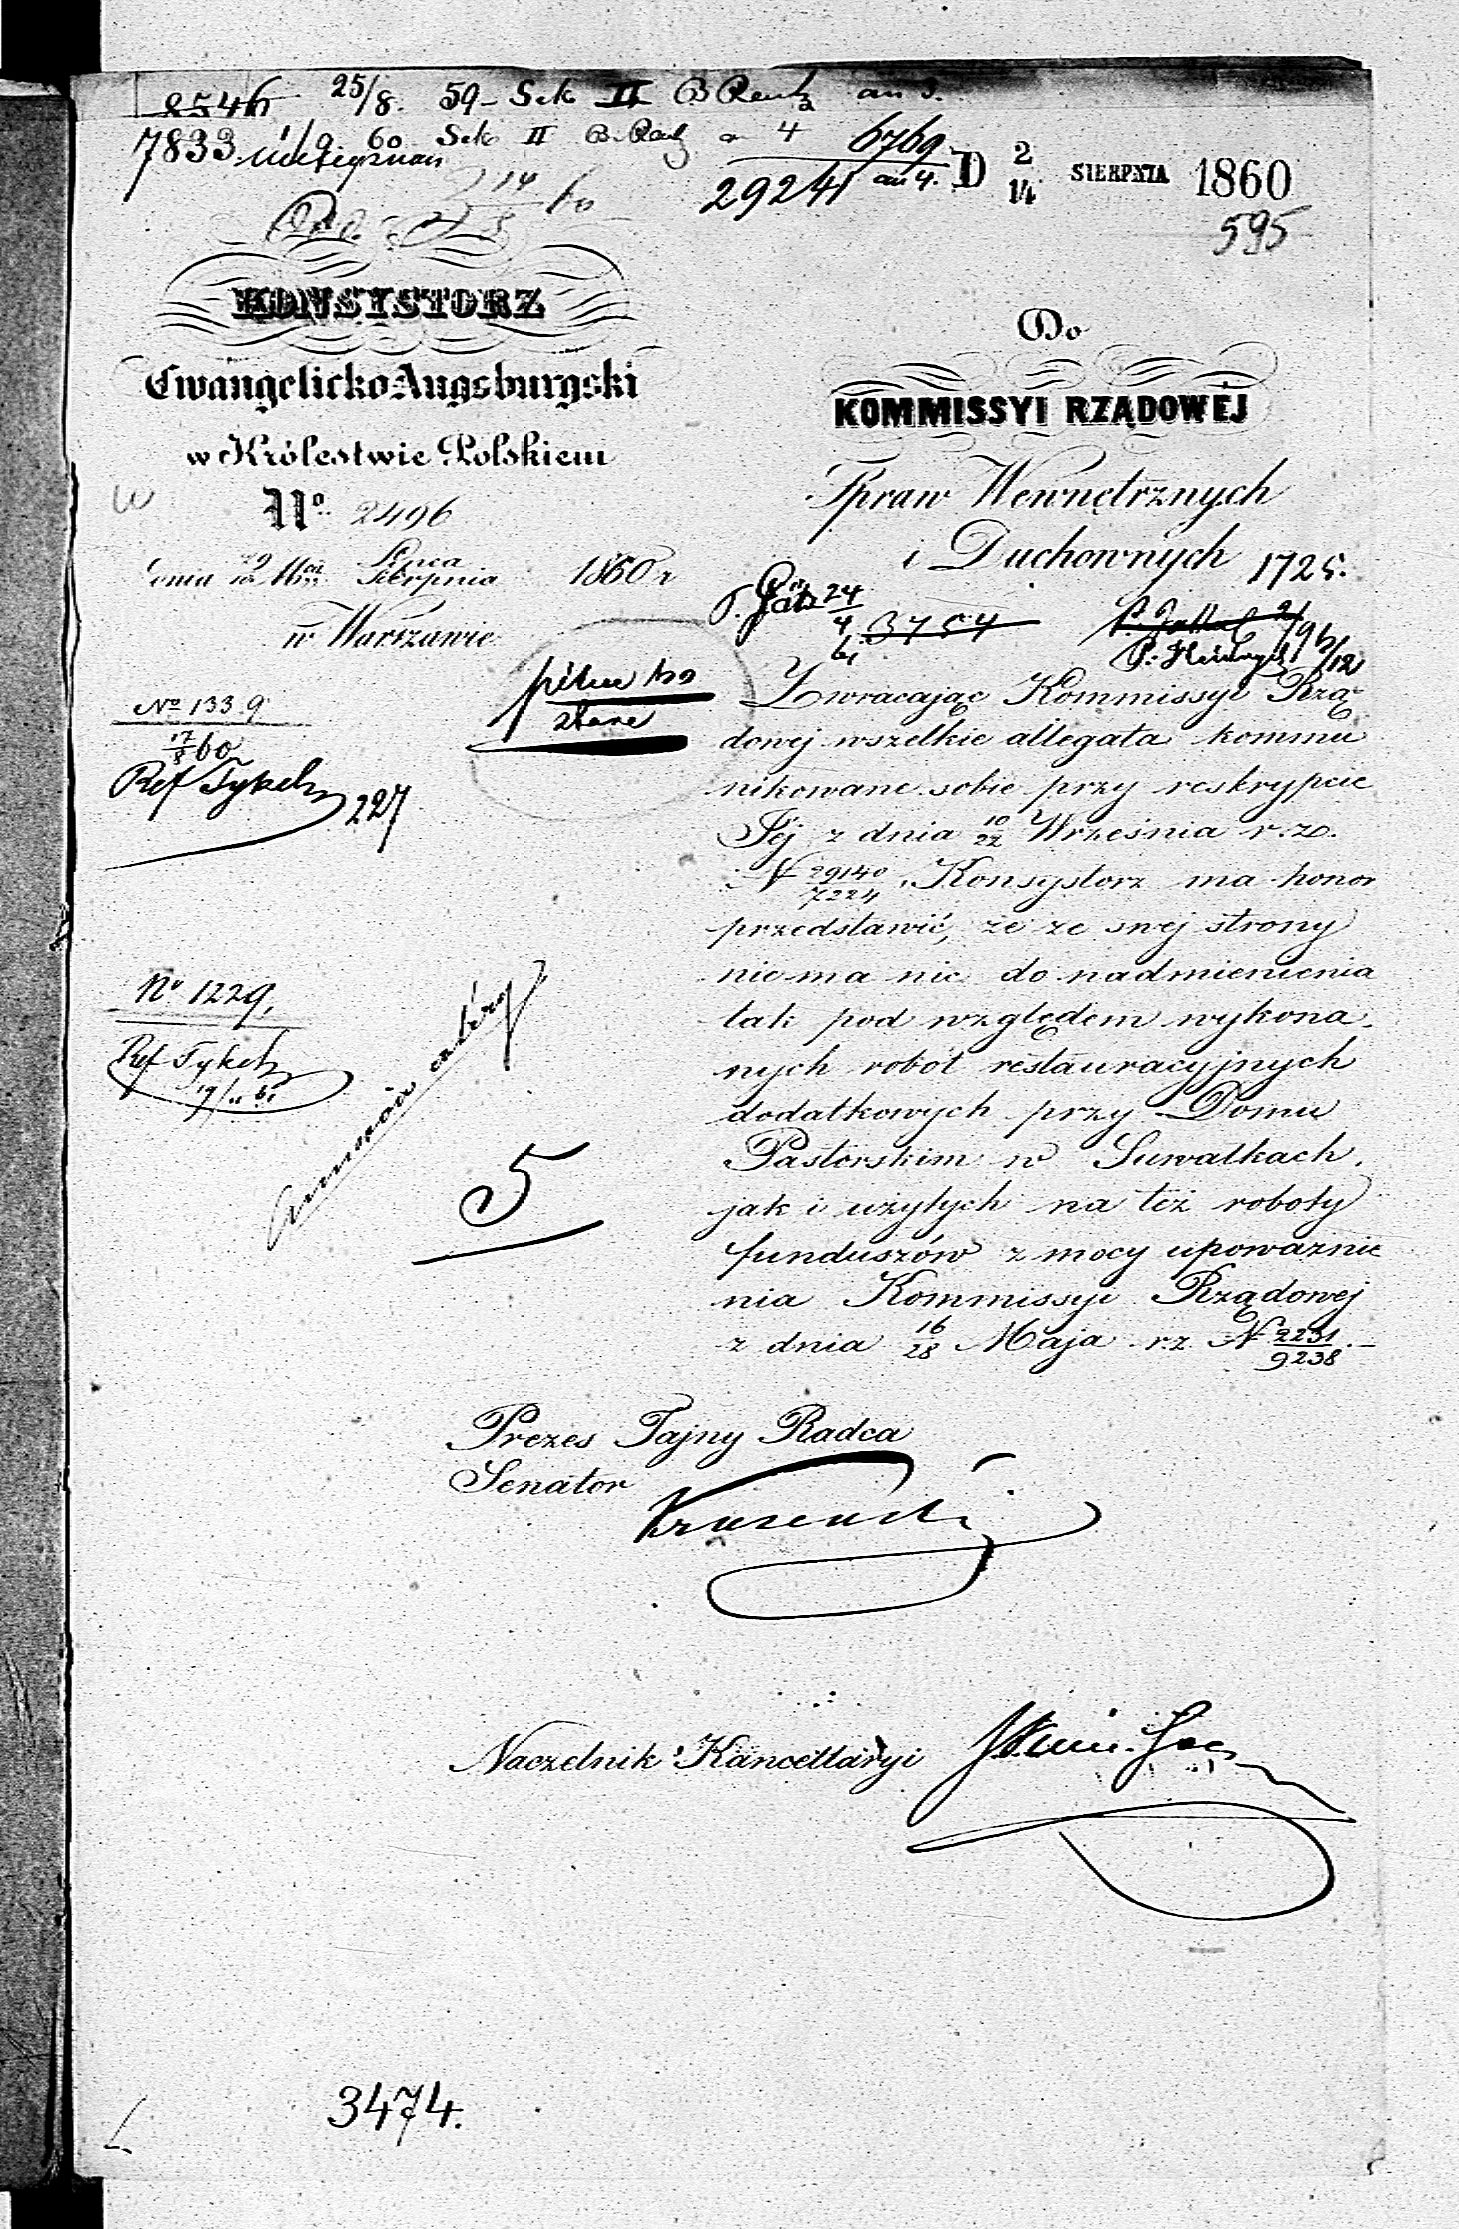 8546 25/8. 59 - Sek II B Rentz an 3.
7833 1/9 60 Sek II B. an 4
6769
29241 an 4. D 2/14 SIERPNIA 1860
14/8 60
595
KONSYSTORZ
Ewangelicko-Augsburgski
w Królestwie Polskiem
No. 2496
dnia 29/11 Lipca/Sierpnia 1860 r
w Warszawie
No 1339
17/8 60
Ref Tykel
227
No 1229,
Ref Tykel
19/11 61
5
Do
KOMMISSYI RZĄDOWEJ
Spraw Wewnętrznych
i Duchownych 1725.
P. 24/4 61 3754
pilne
Zwracając Kommissyi Rzą-
dowej wszelkie allegata kommu
nikowane sobie przy reskrypcie
Jej z dnia 10/22 Września r. z.
N 29140/7224, Konsystorz ma honor
przedstawić, że ze swej strony
nie ma nic do nadmienienia
tak pod względem wykona-
nych robót restauracyjnych
dodatkowych przy Domu
Pastorskim w Suwałkach,
jak i użytych na też roboty
funduszów z mocy upoważnie
nia Kommissyi Rządowej
z dnia 16/28 Maja r. z. N 2231/9238.
Prezes Tajny Radca
Senator
Kruzenstern
Naczelnik Kancellaryi
3474.